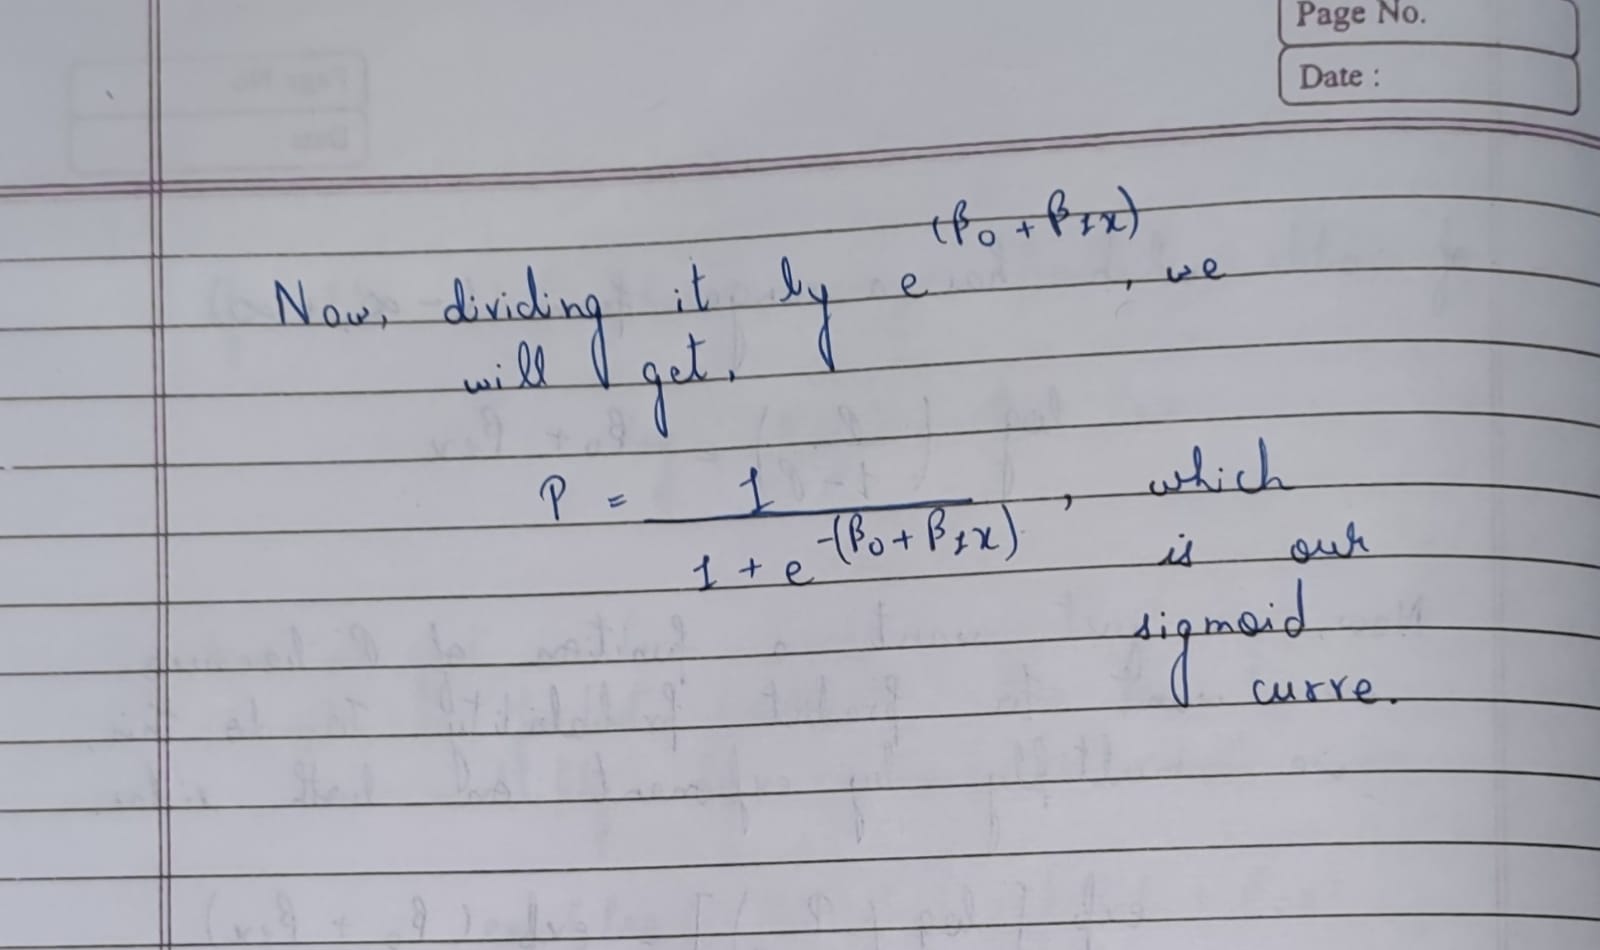 Page No.
Date :
Now, dividing it by e^(β₀ + β₁x), we
will get,
P = 1 / (1 + e^-(β₀ + β₁x)), which
is our
sigmoid
curve.